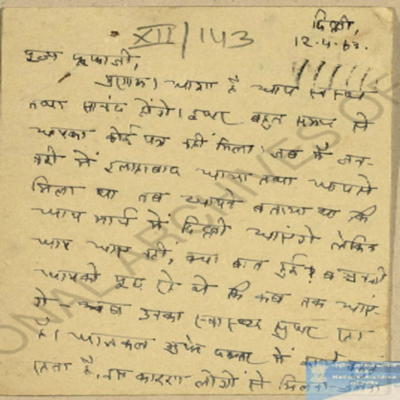 XII/143
दिल्ली,
12.4.63.
पूज्य फूफाजी,
प्रणाम। आशा है आप स्वस्थ
तथा सानंद होंगे। इधर बहुत समय से
आपका कोई पत्र नहीं मिला। जब मैं जन-
वरी में इलाहाबाद आया तथा आपसे
मिला था तब आपने बताया था कि
आप मार्च में दिल्ली आएंगे लेकिन
आप आए नहीं, क्या बात हुई?
आपको पूछ रहे थे कि कब तक आएं-
गे - अब उनका स्वास्थ्य सुधर रहा
है। आजकल मुझे दफ्तर में
रहता है, इस कारण लोगों से मिलना